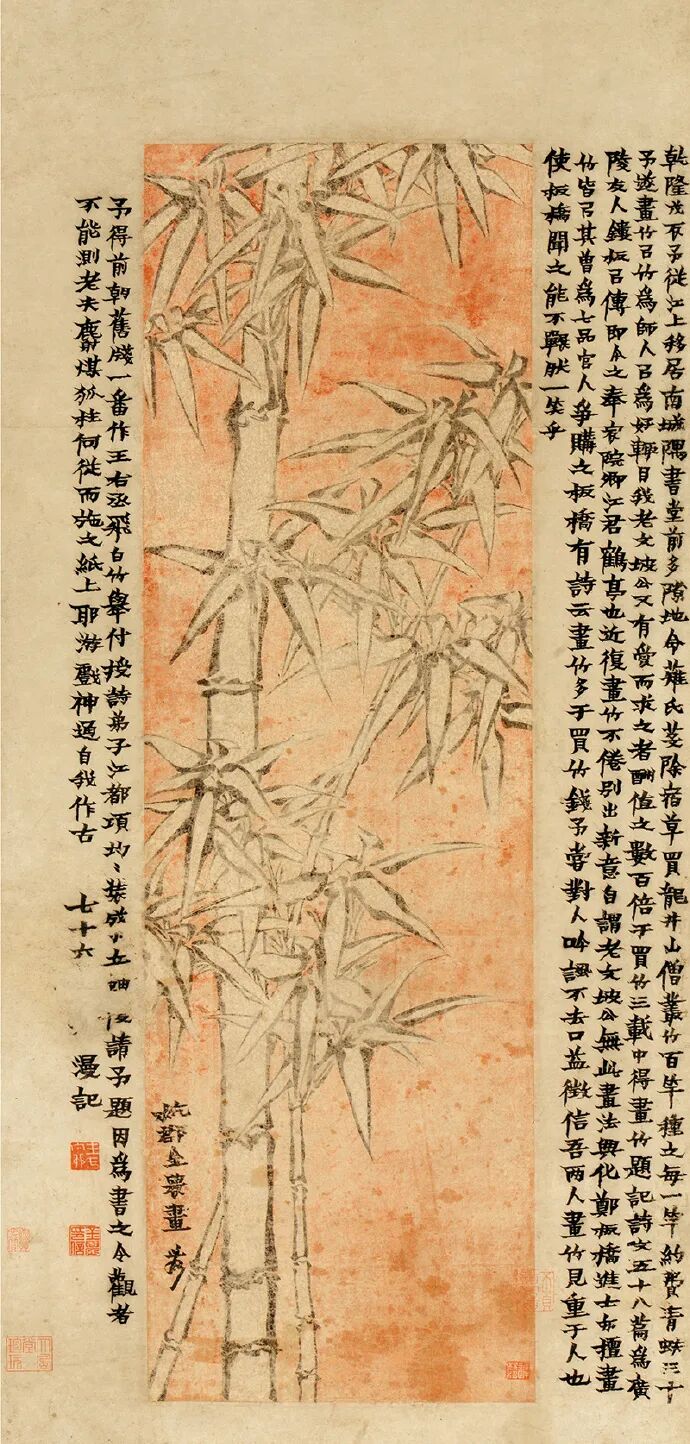 乾隆戊辰予從江上移居南城隅書堂前多隙地令薙氏芟除宿草買龍井山僧叢竹百竿種之每一竿約費青蚨三十
予遂畫竹㠯竹為師人㠯為好輒自我老文坡公又有愛而求之者酬值之數百倍于買竹三載中得畫竹題記詩文五十八篇為廣
陵友人鏤板㠯傳即今之奉宸院卿江君鶴亭也近復畫竹不倦別出新意自謂老文坡公無此畫法興化鄭板橋進士亦擅畫
竹皆㠯其曾為七品官人爭購之板橋有詩云畫竹多于買竹錢予嘗對人吟諷不去口益徵信吾兩人畫竹見重于人也
使板橋聞之能不囅然一笑乎
杭郡金農畫
予得前朝舊牋一番作王右丞飛白竹舉付授詩弟子江都項均〻裝成小立軸復請予題因為書之令觀者
不能測老夫麝煤狐柱何從而施之紙上耶游戲神通自我作古 七十六 漫記